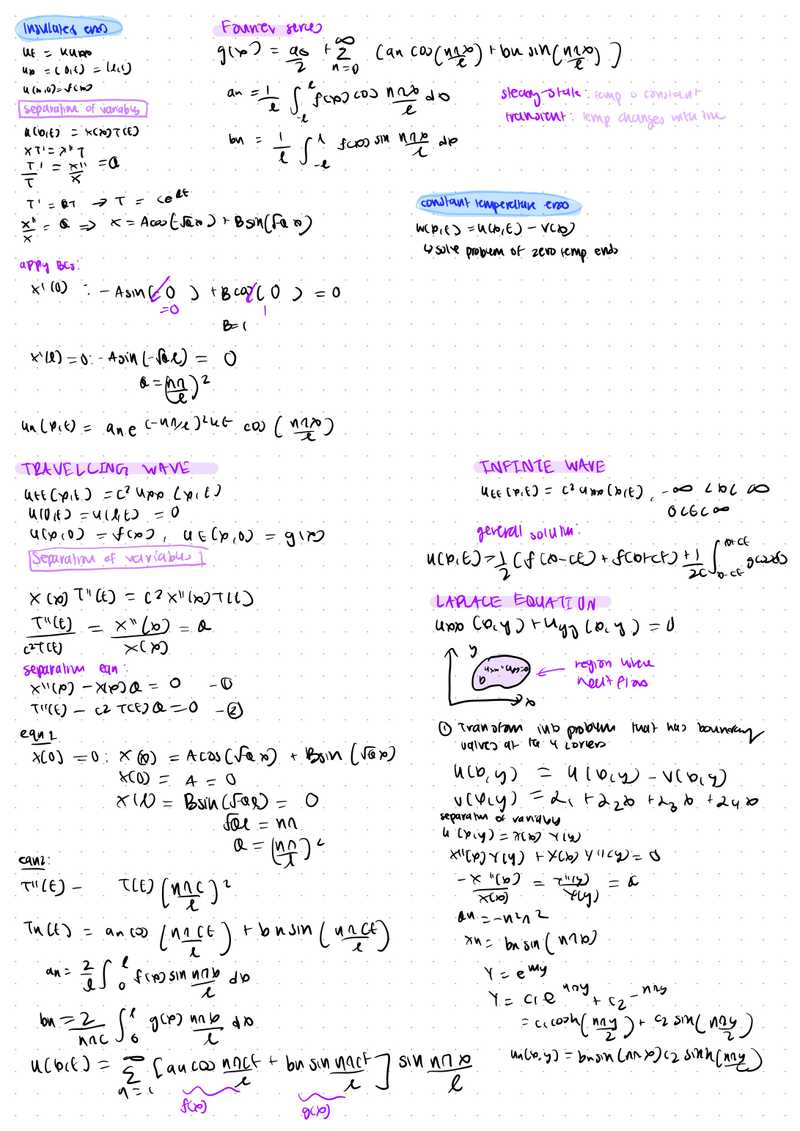 Insulated ends
ut = kuxx
ux = (0,t) = (l,t)
u(x,0) = f(x)
separation of variables
u(x,t) = X(x)T(t)
XT' = X''T
T'/T = X''/X = a
T' = aT → T = ce^at
X''/X = a ⇒ X = Acos(√a x) + Bsin(√a x)
apply BCs:
X'(0) : -Asin( 0 ) + Bcos( 0 ) = 0
=0 1
B = (
X'(l) = 0: -Asin(-√a l) = 0
a = (nπ/l)^2
un(x,t) = an e^(-nπ/l)^2kt cos(nπx/l)
Fourier series
g(x) = a0/2 + ∑ n=0 ∞ (an cos(nπx/l) + bn sin(nπx/l))
an = 1/l ∫-l l f(x) cos nπx/l dx
bn = 1/l ∫-l l f(x) sin nπx/l dx
steady-state: temp is constant
transient: temp changes with time
constant temperature ends
w(x,t) = u(x,t) - v(x)
↳ solve problem of zero temp ends
TRAVELLING WAVE
utt(x,t) = c² uxx(x,t)
u(0,t) = u(l,t) = 0
u(x,0) = f(x), ut(x,0) = g(x)
Separation of variables
X(x)T''(t) = c²X''(x)T(t)
T''(t)/c²T(t) = X''(x)/X(x) = a
separation eqn:
X''(x) - X(x)a = 0 -①
T''(t) - c²T(t)a = 0 -②
eqn1
X(0) = 0: X(x) = Acos(√a x) + Bsin(√a x)
X(0) = A = 0
X(l) = Bsin(√a l) = 0
√a l = nπ
a = (nπ/l)²
eqn2:
T''(t) - T(t)(nπc/l)²
Tn(t) = an cos(nπct/l) + bn sin(nπct/l)
an = 2/l ∫0 l f(x) sin nπx/l dx
bn = 2/nπc ∫0 l g(x) nπx/l dx
u(x,t) = ∑ n=1 ∞ [an cos nπct/l + bn sin nπct/l] sin nπx/l
f(x) g(x)
INFINITE WAVE
utt(x,t) = c² uxx(x,t), -∞ < x < ∞
0 < t < ∞
general solution:
u(x,t) = 1/2 (f(x-ct) + f(x+ct)) + 1/2c ∫x-ct x+ct g(s)ds
LAPLACE EQUATION
uxx(x,y) + uyy(x,y) = 0
y
D
x
region where
heat flows
① Transform into problem that has boundary
values at the 4 corners
u(x,y) = u(x,y) - v(x,y)
v(x,y) = α1 + α2x + α3x + α4x
separation of variables
u(x,y) = X(x)Y(y)
X''(x)Y(y) + X(x)Y''(y) = 0
-X''(x)/X(x) = Y''(y)/Y(y) = a
an = -n²π²
xn = bn sin(nπx)
Y = e^my
Y = c1e^nπy + c2^-nπy
= c1cosh(nπy/2) + c2 sin(nπy/2)
un(x,y) = bn sin(nπx) c2 sinh(nπy/2)